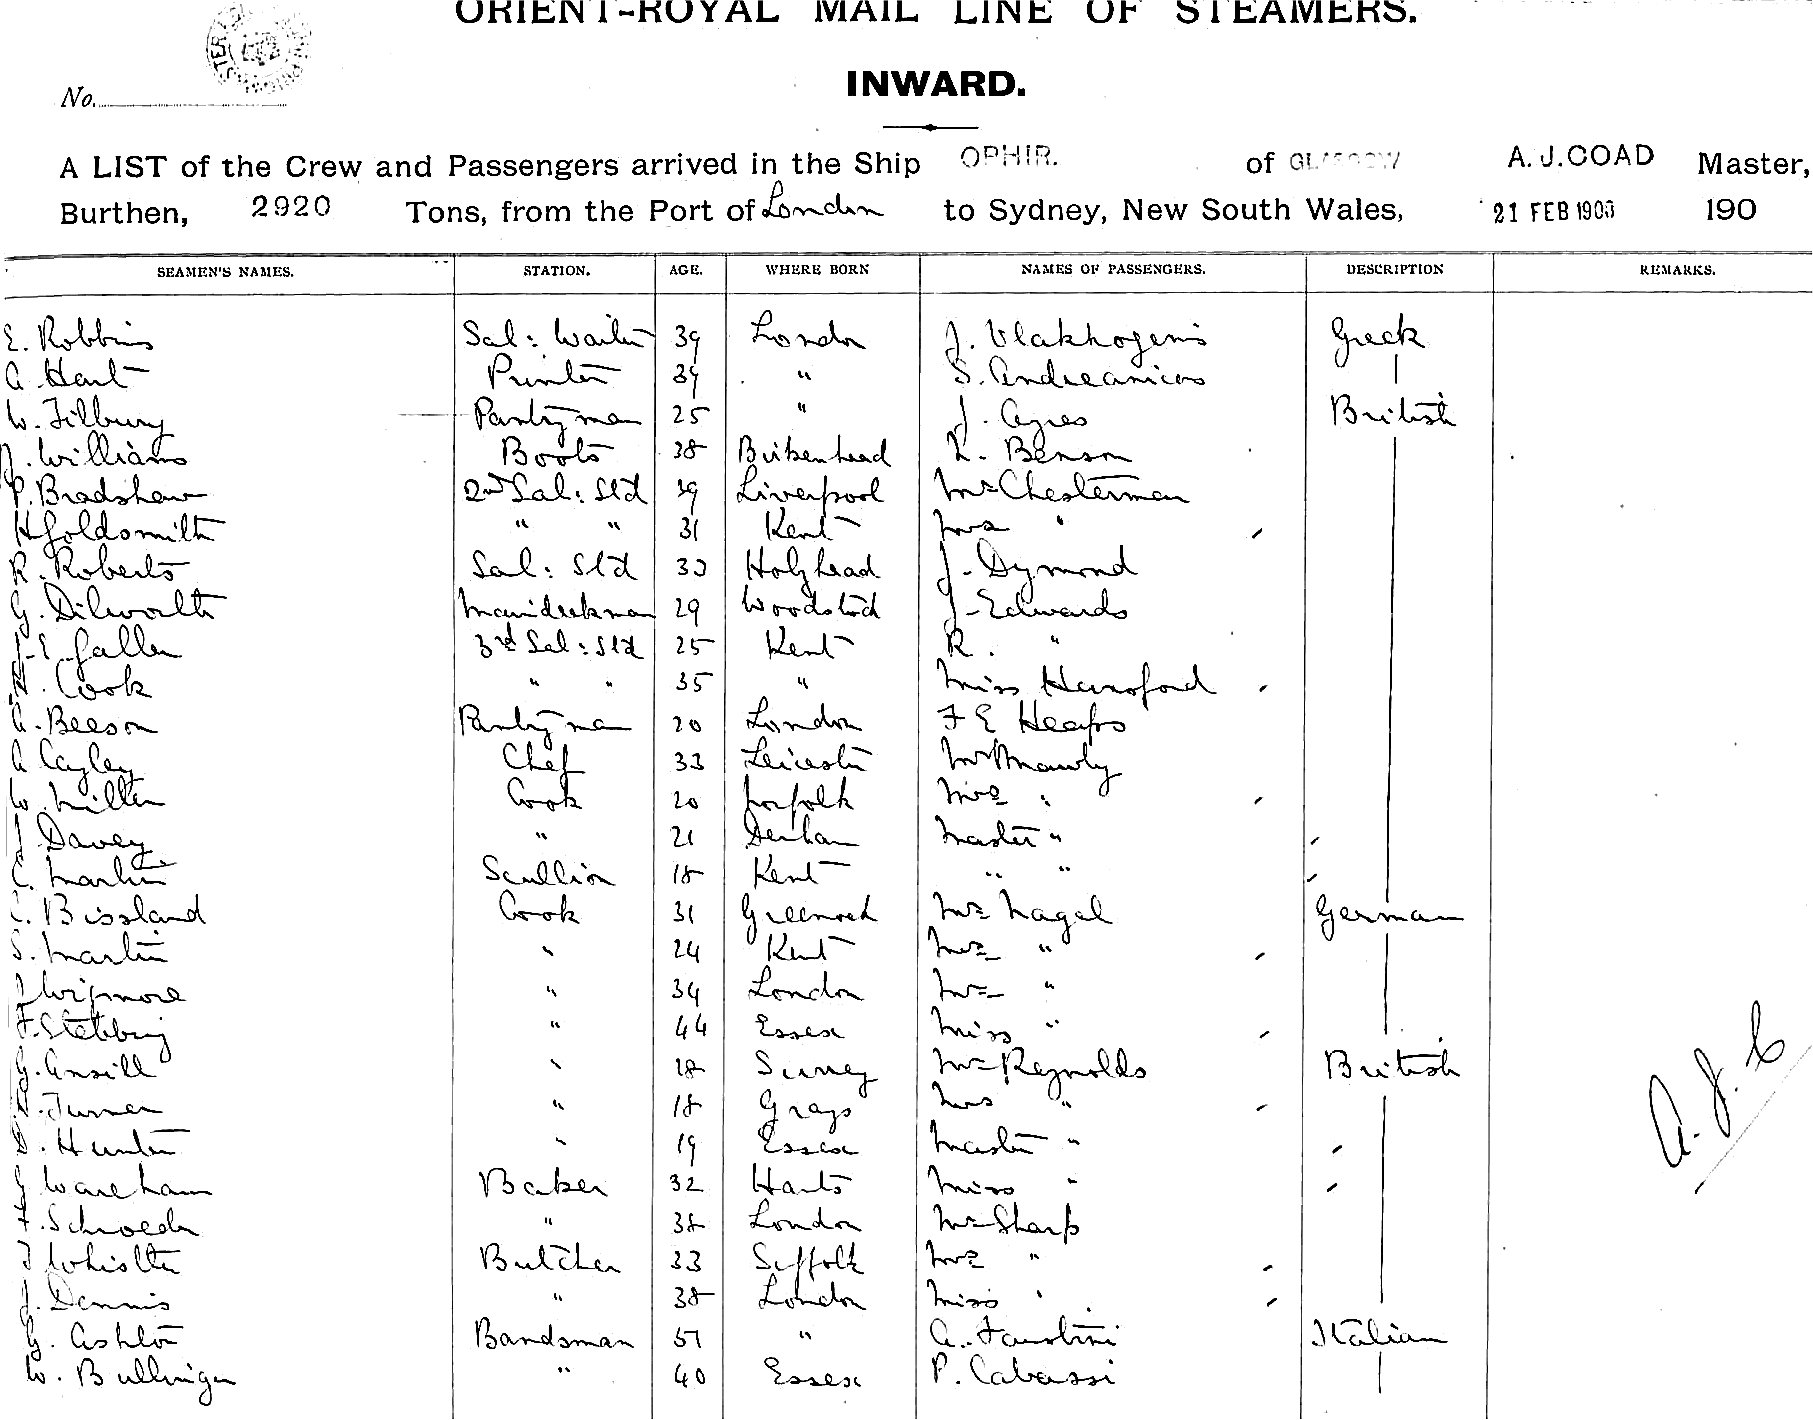 ORIENT-ROYAL MAIL LINE OF STEAMERS.
INWARD.
No.
A LIST of the Crew and Passengers arrived in the Ship OPHIR. of GLASGOW A. J. COAD Master,
Burthen, 2920 Tons, from the Port of London to Sydney, New South Wales, 21 FEB 1903 190
SEAMEN'S NAMES. STATION. AGE. WHERE BORN NAMES OF PASSENGERS. DESCRIPTION REMARKS.
E. Robbins Sal: Waiter 39 London J. Greek
A. Hart Printer 39 " S. Andreanicos
W. Tilbury Pantryman 25 " J. Ayres British
J. Williams Boots 38 Birkenhead Benson
P. Bradshaw 2nd Sal: Std 39 Liverpool Mr Chesterman
H Goldsmith " " 31 Kent Mrs "
R. Roberts Sal: Std 33 Holyhead J. Dymond
G. Dilworth 29 Woodstock J. Edwards
J. E. Galler 3rd Sal: Std 25 Kent R. "
Cook " " 35 " Miss Hansford
A. Beeson Pantryman 20 London F E Heaps
A Cayley Chef 33 Leicester Mr Mawby
W. Miller Cook 20 Norfolk Mrs "
J Davey " 21 Master "
C. Martin Scullion 18 Kent " "
C. Bissland Cook 31 Greenock Mr Nagel German
S. Martin " 24 Kent Mrs "
J Wipmore " 34 London "
F. Stebbing " 44 Essex Miss "
G. Ansill " 28 Surrey Mr Reynolds British
Turner " 18 Grays Mrs "
Hunter " 19 Essex Master "
Wareham Baker 32 Hants Miss "
F. Schroeder " 38 London Mr Sharp
Whistler Butcher 33 Suffolk Mrs "
J. Dennis " 38 London Miss "
G. Ashton Bandsman 51 " A. Faustini Italian
W. Bullinger " 40 Essex P. Cabassi
A. J. C